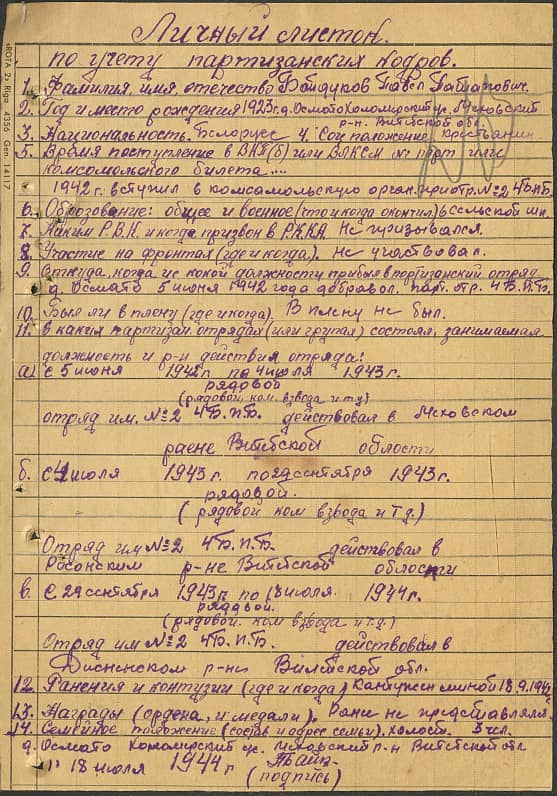 Личный листок
по учету партизанских кадров.
«ROTA 2» Rīga 4336 Gen. 14117
1. Фамилия, имя, отчество Байдуков Павел
2. Год и место рождения 1923 г. д. Осмато Мсховский
р-н. Витебской обл.
3. Национальность. Белорус 4. Соц положение. крестьянин
5. Время поступление в ВКП(б) или ВЛКСМ № парт или
комсомольского билета....
1942 г. вступил в комсамольскую орган. при отр. №2 4 Б.П.Б.
6. Оброзование: общее и военное (что и когда окончил) 6 сельской шк.
7. Каким Р.В.К. и когда призван в Р.К.К.А. Не призывался.
8. Участие на фронтах (где и когда). Не участвовал.
9. Откуда, когда и с какой должности прибыл в портизанский отряд
д. Осмато 5 июня 1942 года добравол. парт. отр. 4 Б.П.Б.
10. Был ли в плену (где и когда). В плену не был.
11. в каких партизан отрядах (или групах) состоял, занимаемая
должность и р-н действия отряда:
а) с 5 июня 1942 г. по 4 июля 1943 г.
рядовой
(рядовой, ком. взвода и т.д)
отряд им. №2 4 Б.П.Б. действовал в Мсховском
раене Витебской области
б. с 4 июля 1943 г. по 29 сентября 1943 г.
рядовой.
(рядовой ком взвода и т д.)
Отряд им №2 4 Б.П.Б. действовал в
Росонским р-не Витебской области
в. с 29 сентября 1943 г. по 18 июля. 1944 г.
рядовой.
(рядовой. ком взвода и т.д.)
Отряд им №2 4 Б.П.Б. действовал в
Дисненском р-не Витебской обл.
12. Ранения и контузии (где и когда) Кантужен миной
13. Награды (ордена, и медали). Ране не представлялся
14. Семейное положение (состав и адрес семьи). холост. 5 чел.
д. Осмато Мсховский р-н Витебской обл
"18 июля 1944 г
(подпись)